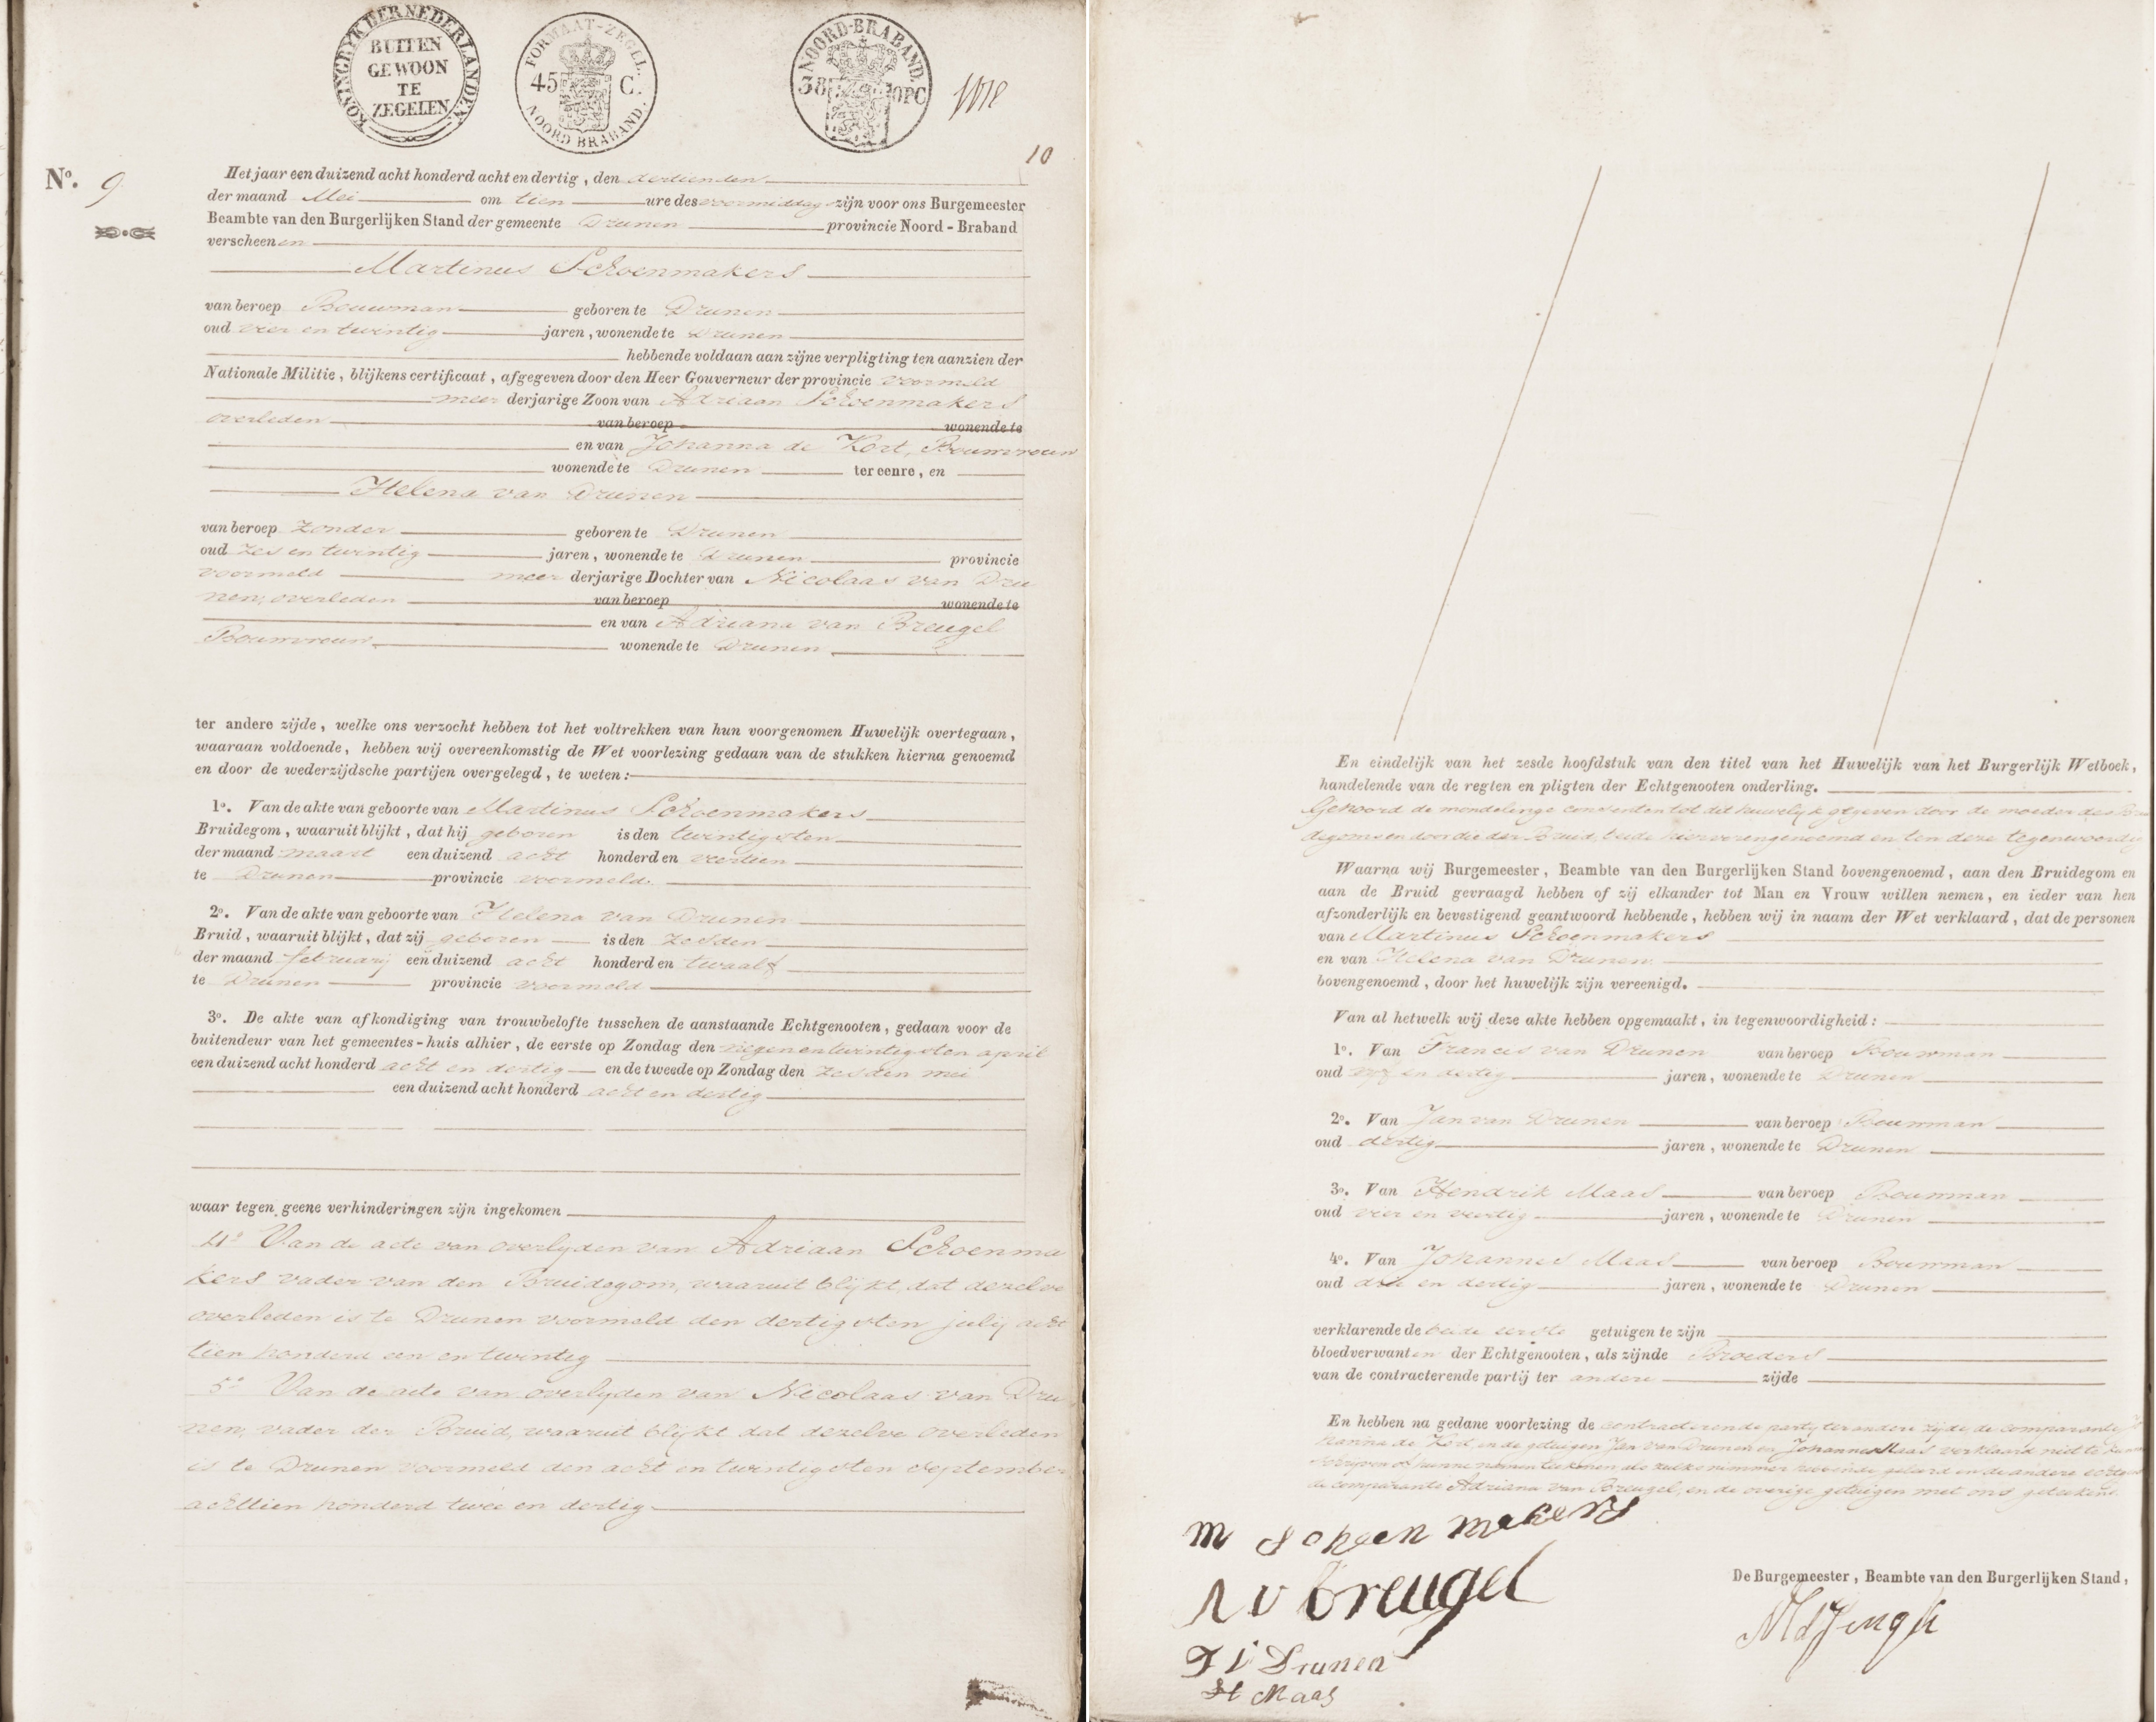 KONINGRYK DER NEDERLANDEN
BUITEN
GEWOON
TE
ZEGELEN
FORMAAT-ZEGEL.
45 C.
NOORD BRABAND.
NOORD-BRABAND.
38 OPC
10
No. 9
Het jaar een duizend acht honderd acht en dertig, den dertienden
der maand Mei om tien ure des voormiddag zijn voor ons Burgemeester
Beambte van den Burgerlijken Stand der gemeente Drunen provincie Noord-Braband
verscheenen
Martinus Schoenmakers
van beroep Bouwman geboren te Drunen
oud vier en twintig jaren, wonende te Drunen
hebbende voldaan aan zijne verpligting ten aanzien der
Nationale Militie, blijkens certificaat, afgegeven door den Heer Gouverneur der provincie voormeld
meer derjarige Zoon van Adriaan Schoenmakers
overleden van beroep wonende te
en van Johanna de Kort, Bouwvrouw
wonende te Drunen ter eenre, en
Helena van Drunen
van beroep zonder geboren te Drunen
oud zes en twintig jaren, wonende te Drunen provincie
voormeld meer derjarige Dochter van Nicolaas van Dru
nen, overleden van beroep wonende te
en van Adriana van Breugel
Bouwvrouw wonende te Drunen
ter andere zijde, welke ons verzocht hebben tot het voltrekken van hun voorgenomen Huwelijk overtegaan,
waaraan voldoende, hebben wij overeenkomstig de Wet voorlezing gedaan van de stukken hierna genoemd
en door de wederzijdsche partijen overgelegd, te weten:
1o. Van de akte van geboorte van Martinus Schoenmakers
Bruidegom, waaruit blijkt, dat hij geboren is den twintigsten
der maand maart een duizend acht honderd en veertien
te Drunen provincie voormeld.
2o. Van de akte van geboorte van Helena van Drunen
Bruid, waaruit blijkt, dat zij geboren is den zesden
der maand februarij een duizend acht honderd en twaalf
te Drunen provincie voormeld
3o. De akte van afkondiging van trouwbelofte tusschen de aanstaande Echtgenooten, gedaan voor de
buitendeur van het gemeentes-huis alhier, de eerste op Zondag den negenentwintigsten april
een duizend acht honderd acht en dertig en de tweede op Zondag den zesden mei
een duizend acht honderd acht en dertig
waar tegen geene verhinderingen zijn ingekomen
4o Van de acte van overlyden van Adriaan Schoenma
kers vader van den Bruidegom, waaruit blijkt, dat dezelve
overleden is te Drunen voormeld den dertigsten julij acht
tien honderd een en twintig
5o Van de acte van overlyden van Nicolaas van Dru
nen, vader der Bruid, waaruit blijkt dat dezelve overleden
is te Drunen voormeld den acht en twintigsten september
achttien honderd twee en dertig
En eindelijk van het zesde hoofdstuk van den titel van het Huwelijk van het Burgerlijk Wetboek,
handelende van de regten en pligten der Echtgenooten onderling.
Gehoord de mondelinge consenten tot dit huwelijk gegeven door de moeder des Brui
degoms en door die der Bruid, beide hiervorengenoemd en ten deze tegenwoordig
Waarna wij Burgemeester, Beambte van den Burgerlijken Stand bovengenoemd, aan den Bruidegom en
aan de Bruid gevraagd hebben of zij elkander tot Man en Vrouw willen nemen, en ieder van hen
afzonderlijk en bevestigend geantwoord hebbende, hebben wij in naam der Wet verklaard, dat de personen
van Martinus Schoenmakers
en van Helena van Drunen
bovengenoemd, door het huwelijk zijn vereenigd.
Van al hetwelk wij deze akte hebben opgemaakt, in tegenwoordigheid:
1o. Van Francis van Drunen van beroep Bouwman
oud vyf en dertig jaren, wonende te Drunen
2o. Van Jan van Drunen van beroep Bouwman
oud dertig jaren, wonende te Drunen
3o. Van Hendrik Maas van beroep Bouwman
oud vier en veertig jaren, wonende te Drunen
4o. Van Johannes Maas van beroep Bouwman
oud drie en dertig jaren, wonende te Drunen
verklarende de beide eerste getuigen te zijn
bloedverwanten der Echtgenooten, als zijnde Broeders
van de contracterende partij ter andere zijde
En hebben na gedane voorlezing de contracterende party ter andere zijde, de comparante Jo
hanna de Kort, en de getuigen Jan van Drunen en Johannes Maas verklaard niet te kunnen
schryven of hunne namen teekenen als zulks nimmer hebbende geleerd en de andere
de comparante Adriana van Breugel, en de overige getuigen met ons geteekend.
M Schoenmakers
A v Breugel
F V Drunen
H Maas
De Burgemeester, Beambte van den Burgerlijken Stand,